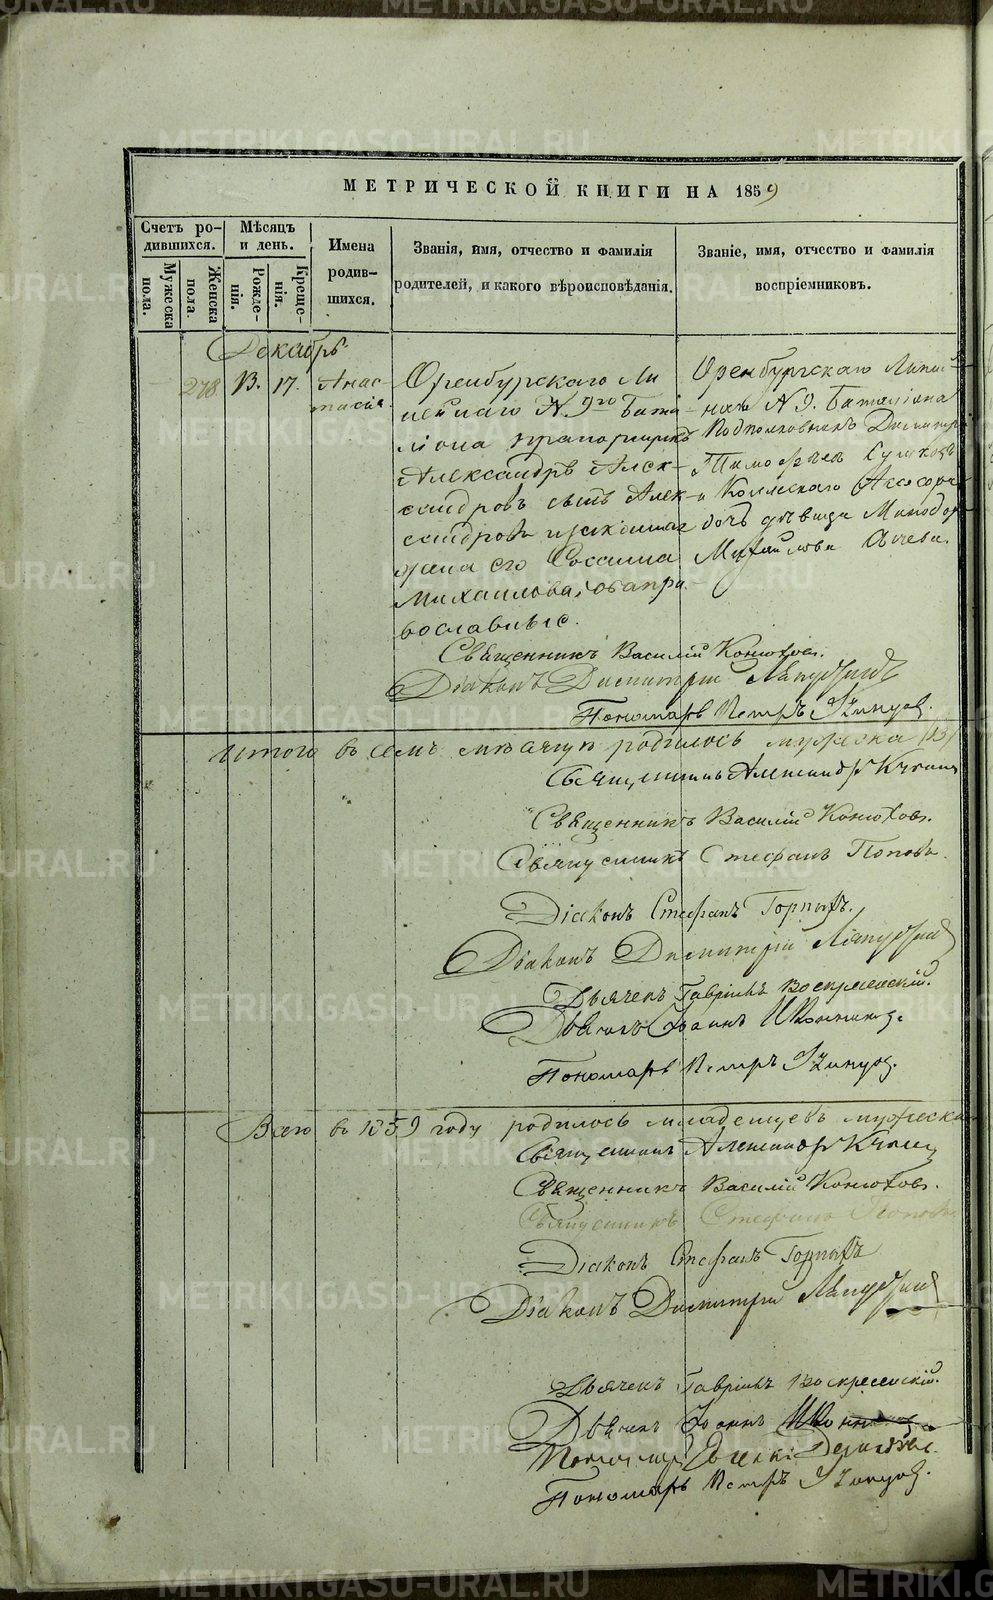 МЕТРИЧЕСКОЙ КНИГИ НА 1859
Счетъ родившихся.
Мужеска пола.
Женска пола
Мѣсяцъ и день.
Рожденія.
Крещенія.
Имена родившихся.
Званія, имя, отчество и фамилія
родителей, и какого вѣроисповѣданія.
Званіе, имя, отчество и фамилія
воспріемниковъ.
Декабрь
278. 13. 17. Анас-
тасія
Оренбургскаго Ли
нейнаго N. 9го Бата-
ліона прапорщикъ
Александръ Алек-
сандровъ сынъ Алек-
сандровъ изаконная
жена его
Михаилова, оба пра-
вославные.
Оренбургскаго Линей-
наго N 9. Баталіона
Подполковникъ Димитрі
Тимофѣевъ
и Колежскаго Ассесора
дочь дѣвица
Михайлова
Священникъ Василій Конюховъ.
Діаконъ Димитрій
Пономарь Петръ
Итого въ семъ мѣсяцѣ родилось мужеска
Священникъ Александръ
Священникъ Василій Конюховъ.
Священникъ Стефанъ Поповъ.
Діаконъ Стефанъ Горныхъ.
Діаконъ Димитрій
Дьячекъ Гавріилъ Воскресенскій.
Дьячекъ Іоаннъ Иконниковъ.
Пономарь Петръ
Всего въ 1859 году родилось младенцевъ мужеска
Священникъ Александръ
Священникъ Василій Конюховъ.
Священникъ Стефанъ Поповъ
Діаконъ Стефанъ Горныхъ
Діаконъ Димитрій
Дьячекъ Гавріилъ Воскресенскій.
Дьячекъ Іоаннъ
Пономарь
Пономарь Петръ
METRIKI.GASO-URAL.RU